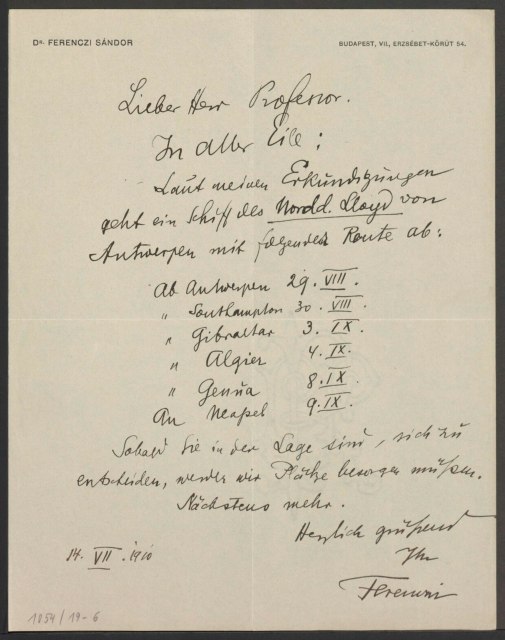 Dr. FERENCZI SÁNDOR
BUDAPEST, VII., ERZSÉBET-KÖRÚT 54.
Lieber Herr Professor.
In aller Eile:
Laut meinen Erkundigungen
geht ein Schiff des Nordd. Lloyd von
Antwerpen mit folgender Route ab:
Ab Antwerpen 29. VIII.
" Southampton 30. VIII.
" Gibraltar 3. IX.
" Algier 4. IX.
" Genua 8. IX.
An Neapel 9. IX.
Sobald Sie in der Lage sind, sich zu
entscheiden, werden wir Plätze besorgen müssen.
Nächstens mehr.
Herzlich grüßend
Ihr
Ferenczi
14. VII. 1910
1054/19-6